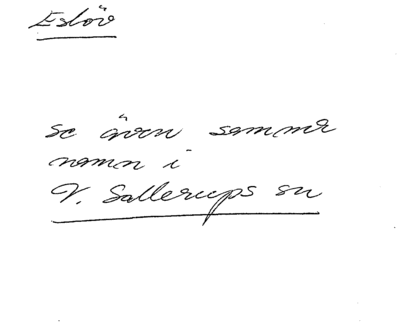 Eslöv
se även samma
namn i
V. Sallerups sn